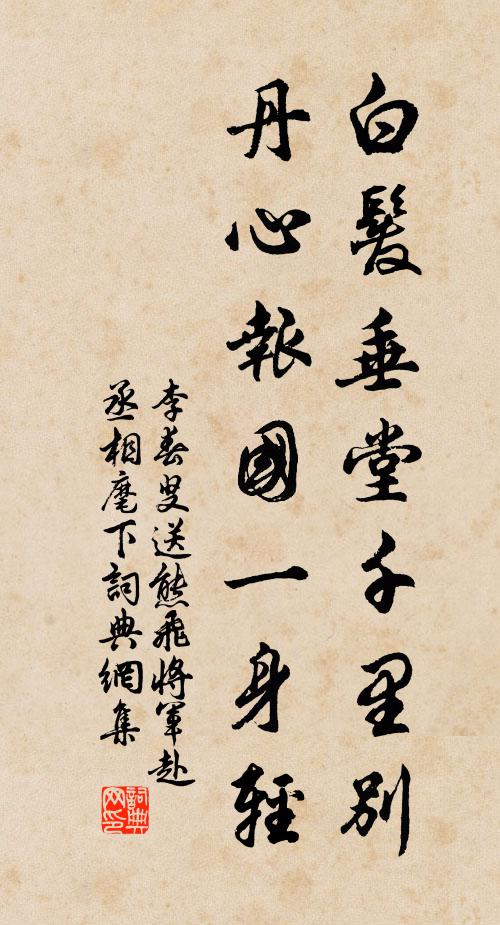 白髮垂堂千里別
丹心報國一身輕
李春叟送熊飛將軍赴
丞相麾下詞典網集
詞典網印